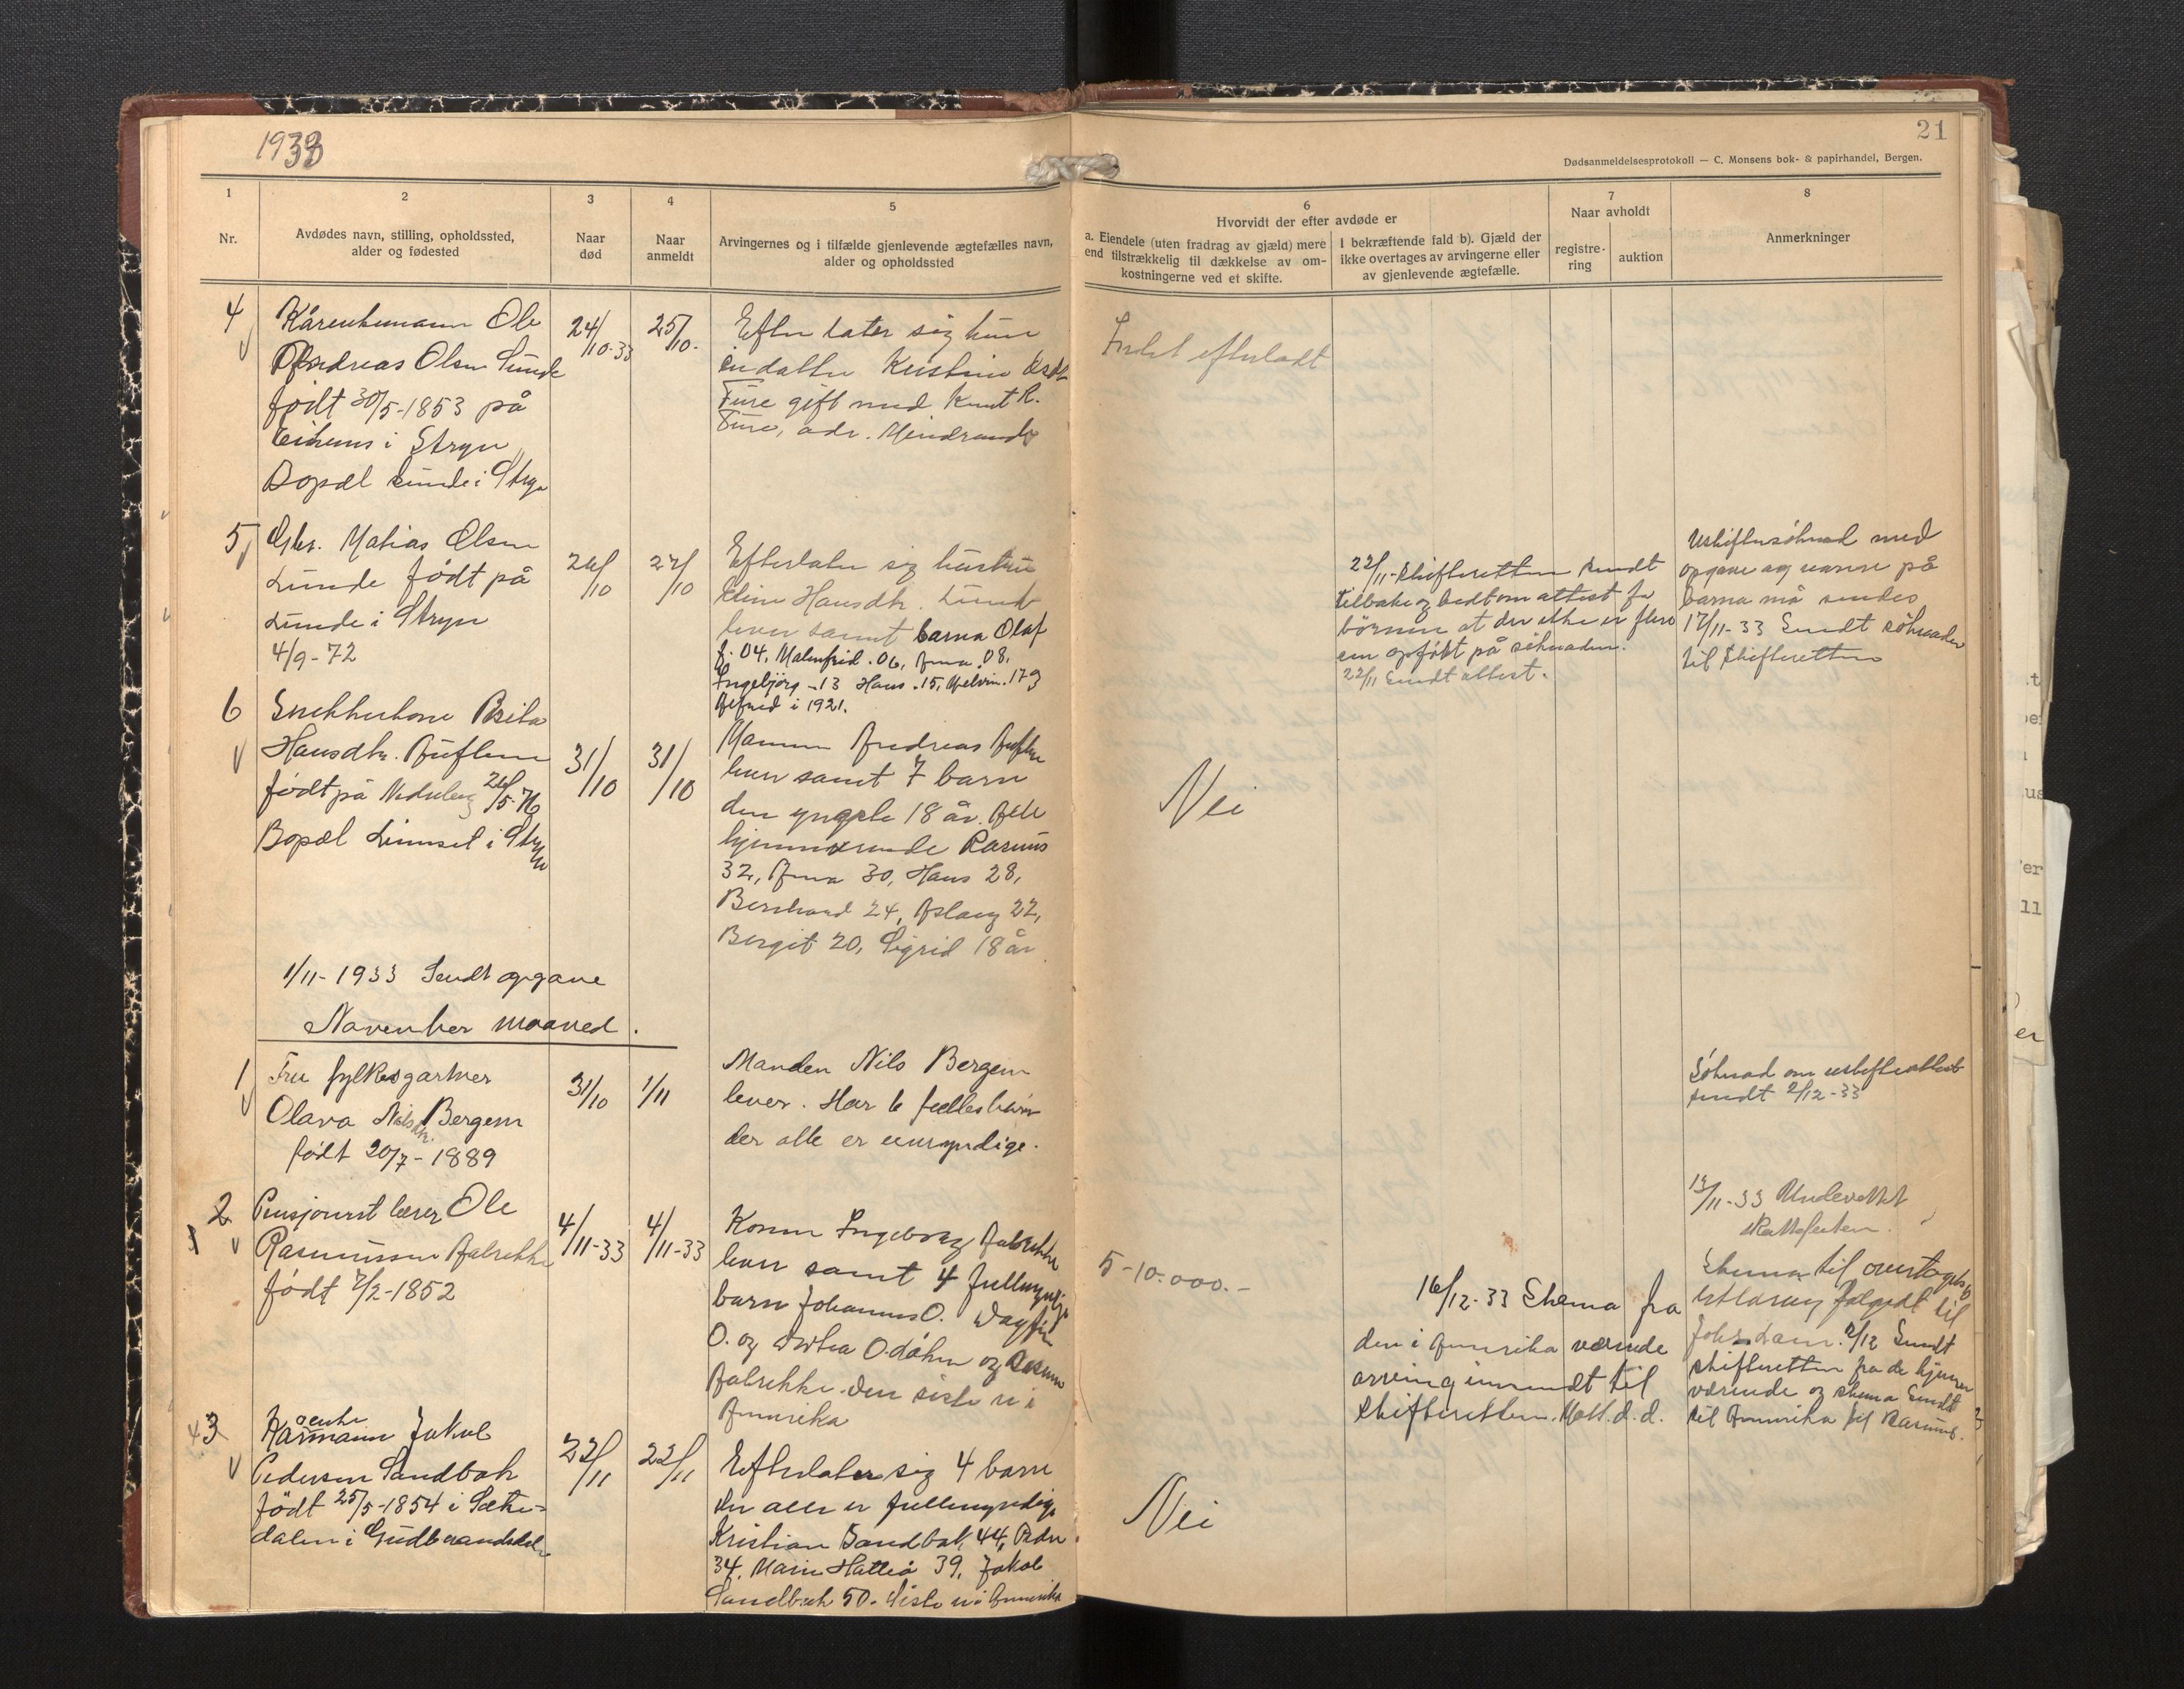 1933
21
Dødsanmeldelsesprotokoll — C. Monsens bok- & papirhandel, Bergen.
1
2
3
4
5
6
7
8
Nr.
Avdødes navn, stilling, opholdssted,
alder og fødested
Naar
død
Naar
anmeldt
Arvingernes og i tilfælde gjenlevende ægtefælles navn,
alder og opholdssted
Hvorvidt der efter avdøde er
a. Eiendele (uten fradrag av gjæld) mere
end tilstrækkelig til dækkelse av om-
kostningerne ved et skifte.
I bekræftende fald b). Gjæld der
ikke overtages av arvingerne eller
av gjenlevende ægtefælle.
Naar avholdt
registre-
ring
auktion
Anmerkninger
4
Kårenkemann Ole
Andreas Olsen Sunde
født 30/5-1853 på
i Stryn
Bopæl Sunde i Stryn
24/10-33
25/10-
Efterlater sig kun
en datter Kristine
Fure gift med Knut R.
Fure, adr. Mindresunde
Intet efterladt
5
Gbr. Matias Olsen
Lunde født på
Lunde i Stryn
4/9-72
26/10
27/10
Efterlater sig hustru
Eline Hansdtr. Lunde
lever samt barna Olaf
f. 04, Malmfrid .06, Anna .08,
Ingebjørg -13 Hans .15, Melvin .17 og
Alfred i 1921.
22/11- Skifteretten sendt
tilbake og bedt om attest for
børnene at der ikke er flere
enn opført på søknaden.
22/11 Sendt attest.
Uskiftesøknad med
opgave av navne på
barna må sendes
17/11-33 Sendt søknaden
til Skifteretten
6
Snekkerkone Brita
Hansdtr. Auflem
født på Nedreberg 26/5-76
Bopæl Linnset i Stryn
31/10
31/10
Mannen Andreas Auflem
lever samt 7 barn
den yngste 18 år. Alle
hjemmeværende Rasmus
32, Anna 30, Hans 28,
Bernhard 24, Aslaug 22,
Bergit 20, Sigrid 18 år.
Nei
1/11-1933 Sendt opgave
November maaned.
1
Fru fylkesgartner
Olava Nilsdtr. Bergem
født 20/7-1889
31/10
1/11
Manden Nils Bergem
lever. Har 6 fællesbarn
der alle er umyndige.
Søknad om uskifteattest
sendt 2/12-33
2
Pensjonert lærer Ole
Rasmussen Aabrekke
født 7/2-1852
4/11-33
4/11-33
Konen Ingeborg Aabrekke
lever samt 4 fullmyndige
barn Johannes O. Dagfin
O. og Dortea O. døtre og Rasmus
Aabrekke. Den siste er i
Amerika
5-10.000.-
16/12-33 Skema fra
den i Amerika værende
arving innsendt til
Skifteretten. Mott. d.d.
13/11-33 Underrettet
skattefuten.
Skema til overtagelses
erklæring følgedt til
2/12 Sendt
skifteretten fra de hjemme
værende og skema sendt
til Amerika til Rasmus.
3
Kårenkemann Jakob
Pedersen Sandbak
født 25/5-1854 i
dalen i Gudbrandsdalen
22/11
22/11
Efterlater sig 4 barn
der alle er fullmyndige
Kristian Sandbak, 44, Peder
34, Marie 39, Jakob
Sandbak 50. Siste er i Amerika
Nei